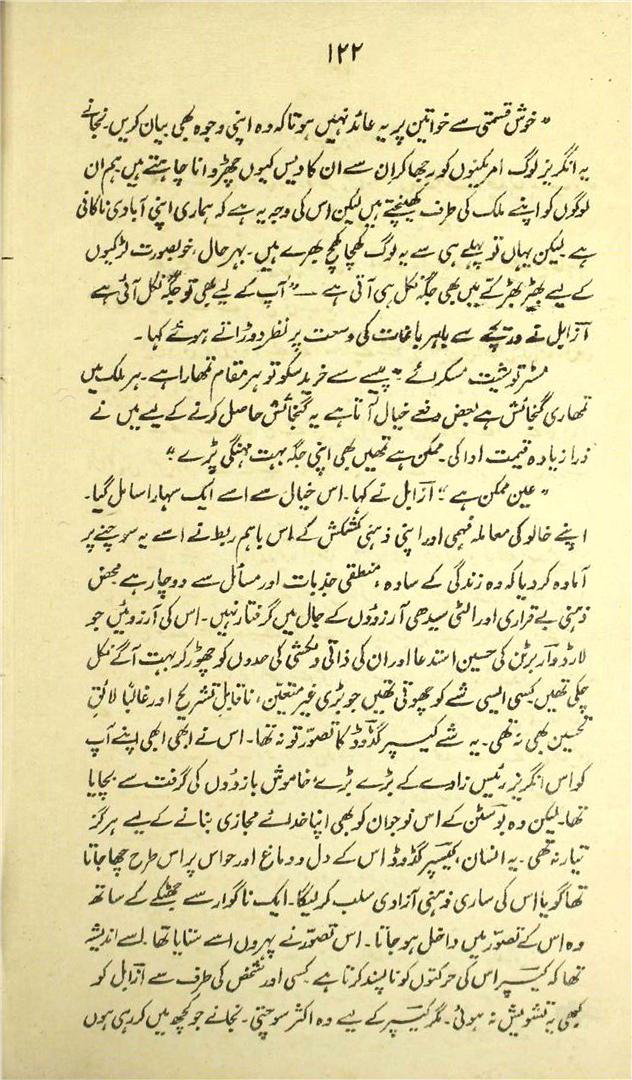 ۱۲۲
"خوش قسمتی سے خواتین پر یہ عائد نہیں ہوتا کہ وہ اپنی وجوہ بھی بیان کریں۔ نجانے
یہ انگریز لوگ امریکنوں کو رجھا کر ان سے ان کا دیس کیوں چھڑوانا چاہتے ہیں ہم ان
لوگوں کو اپنے ملک کی طرف کھینچتے ہیں لیکن اس کی وجہ یہ ہے کہ ہماری اپنی آبادی ناکافی
ہے لیکن یہاں تو پہلے ہی سے یہ لوگ کھچا کھچ بھرے ہیں۔ بہر حال، خوبصورت لڑکیوں
کے لیے بھیڑ بھڑکے میں بھی جگہ نکل ہی آتی ہے — "آپ کے لیے بھی تو جگہ نکل آئی ہے
آزابل نے دریچے سے باہر باغات کی وسعت پر نظر دوڑاتے ہوئے کہا۔
مسٹر توشیت مسکرائے "پیسے سے خرید سکو تو ہر مقام تمھارا ہے۔ ہر ملک میں
تمھاری گنجائش ہے بعض دفعے خیال آتا ہے یہ گنجائش حاصل کرنے کے لیے میں نے
ذرا زیادہ قیمت ادا کی۔ ممکن ہے تمھیں بھی اپنی جگہ بہت مہنگی پڑے"
"عین ممکن ہے"۔ آزابل نے کہا۔ اس خیال سے اسے ایک سہارا سا مل گیا۔
اپنے خالو کی معاملہ فہمی اور اپنی ذہنی کشمکش کے اس باہم ربط نے اسے یہ سوچنے پر
آمادہ کر دیا کہ وہ زندگی کے سادہ، منطقی جذبات اور مسائل سے دوچار ہے محض
ذہنی بے قراری اور الٹی سیدھی آرزوؤں کے جال میں گرفتار نہیں۔ اس کی آرزوئیں جو
لارڈ واربرٹن کی حسین استدعا اور ان کی ذاتی دلکشی کی حدوں کو چھوڑ کر بہت آگے نکل
چکی تھیں کسی ایسی شے کو چھوتی تھیں جو بڑی غیر متعین، ناقابلِ تشریح اور غالباً لائقِ
تحسین بھی نہ تھی۔ یہ شے کیسپر گڈووڈ کا تصوّر تو نہ تھا۔ اس نے ابھی ابھی اپنے آپ
کو اس انگریز رئیس زادے کے بڑے بڑے خاموش بازوؤں کی گرفت سے بچایا
تھا۔ لیکن وہ بوسٹن کے اس نوجوان کو بھی اپنا خدائے مجازی بنانے کے لیے ہرگز
تیار نہ تھی۔ یہ انسان، کیسپر گڈووڈ اس کے دل و دماغ اور حواس پر اس طرح چھا جاتا
تھا گویا اس کی ساری ذہنی آزادی سلب کر لیگا۔ ایک ناگوار سے جھٹکے کے ساتھ
وہ اس کے تصوّر میں داخل ہو جاتا۔ اس تصوّر نے پہروں اسے ستایا تھا۔ اسے اندیشہ
تھا کہ کیسپر اس کی حرکتوں کو ناپسند کرتا ہے کسی اور شخص کی طرف سے آزابل کو
کبھی یہ تشویش نہ ہوئی۔ مگر کیسپر کے لیے وہ اکثر سوچتی۔ نجانے جو کچھ میں کر رہی ہوں